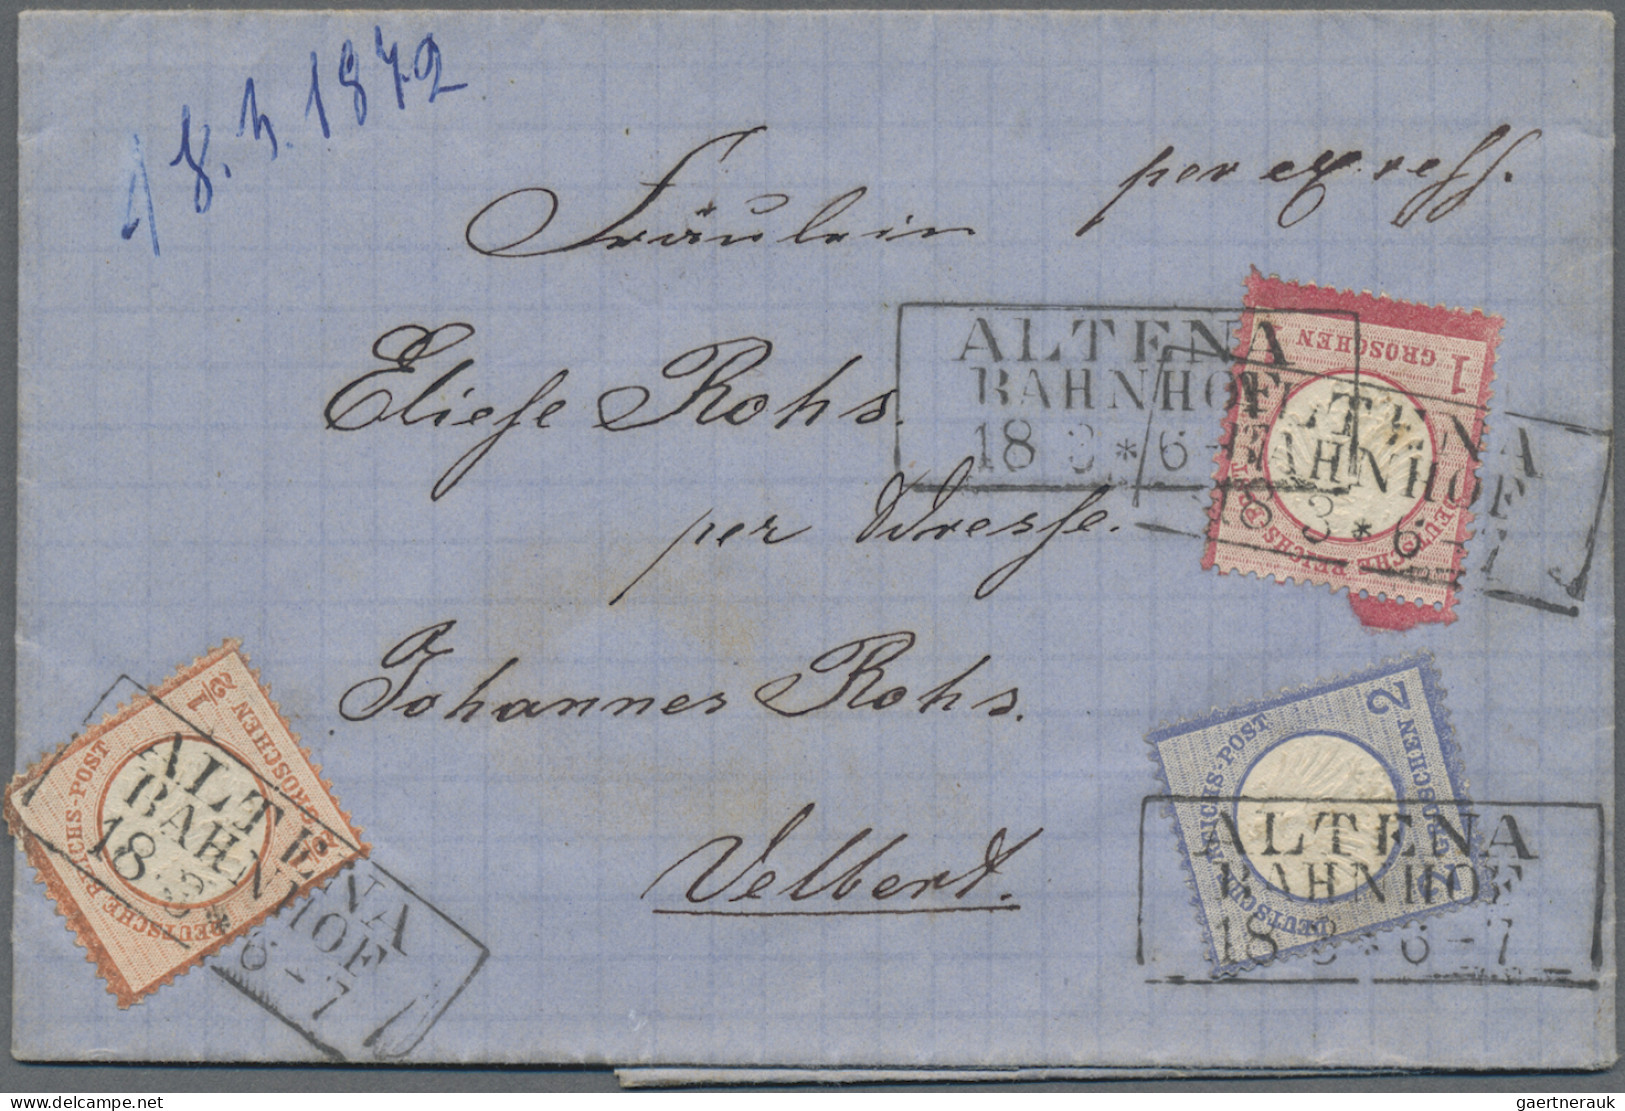 18. 3. 1872
per express.
Fräulein
Eliese Rohs.
per Adresse.
Johannes Rohs.
Velbert.
ALTENA
BAHNHOF
18 3 * 6-7
ALTENA
BAHNHOF
18 3 * 6-7
1
GROSCHEN
DEUTSCHE REICHS-POST
ALTENA
BAHNHOF
18 3 * 6-7
1/2
GROSCHEN
DEUTSCHE REICHS-POST
ALTENA
BAHNHOF
18 3 * 6-7
2
GROSCHEN
DEUTSCHE REICHS-POST
gaertnerauk